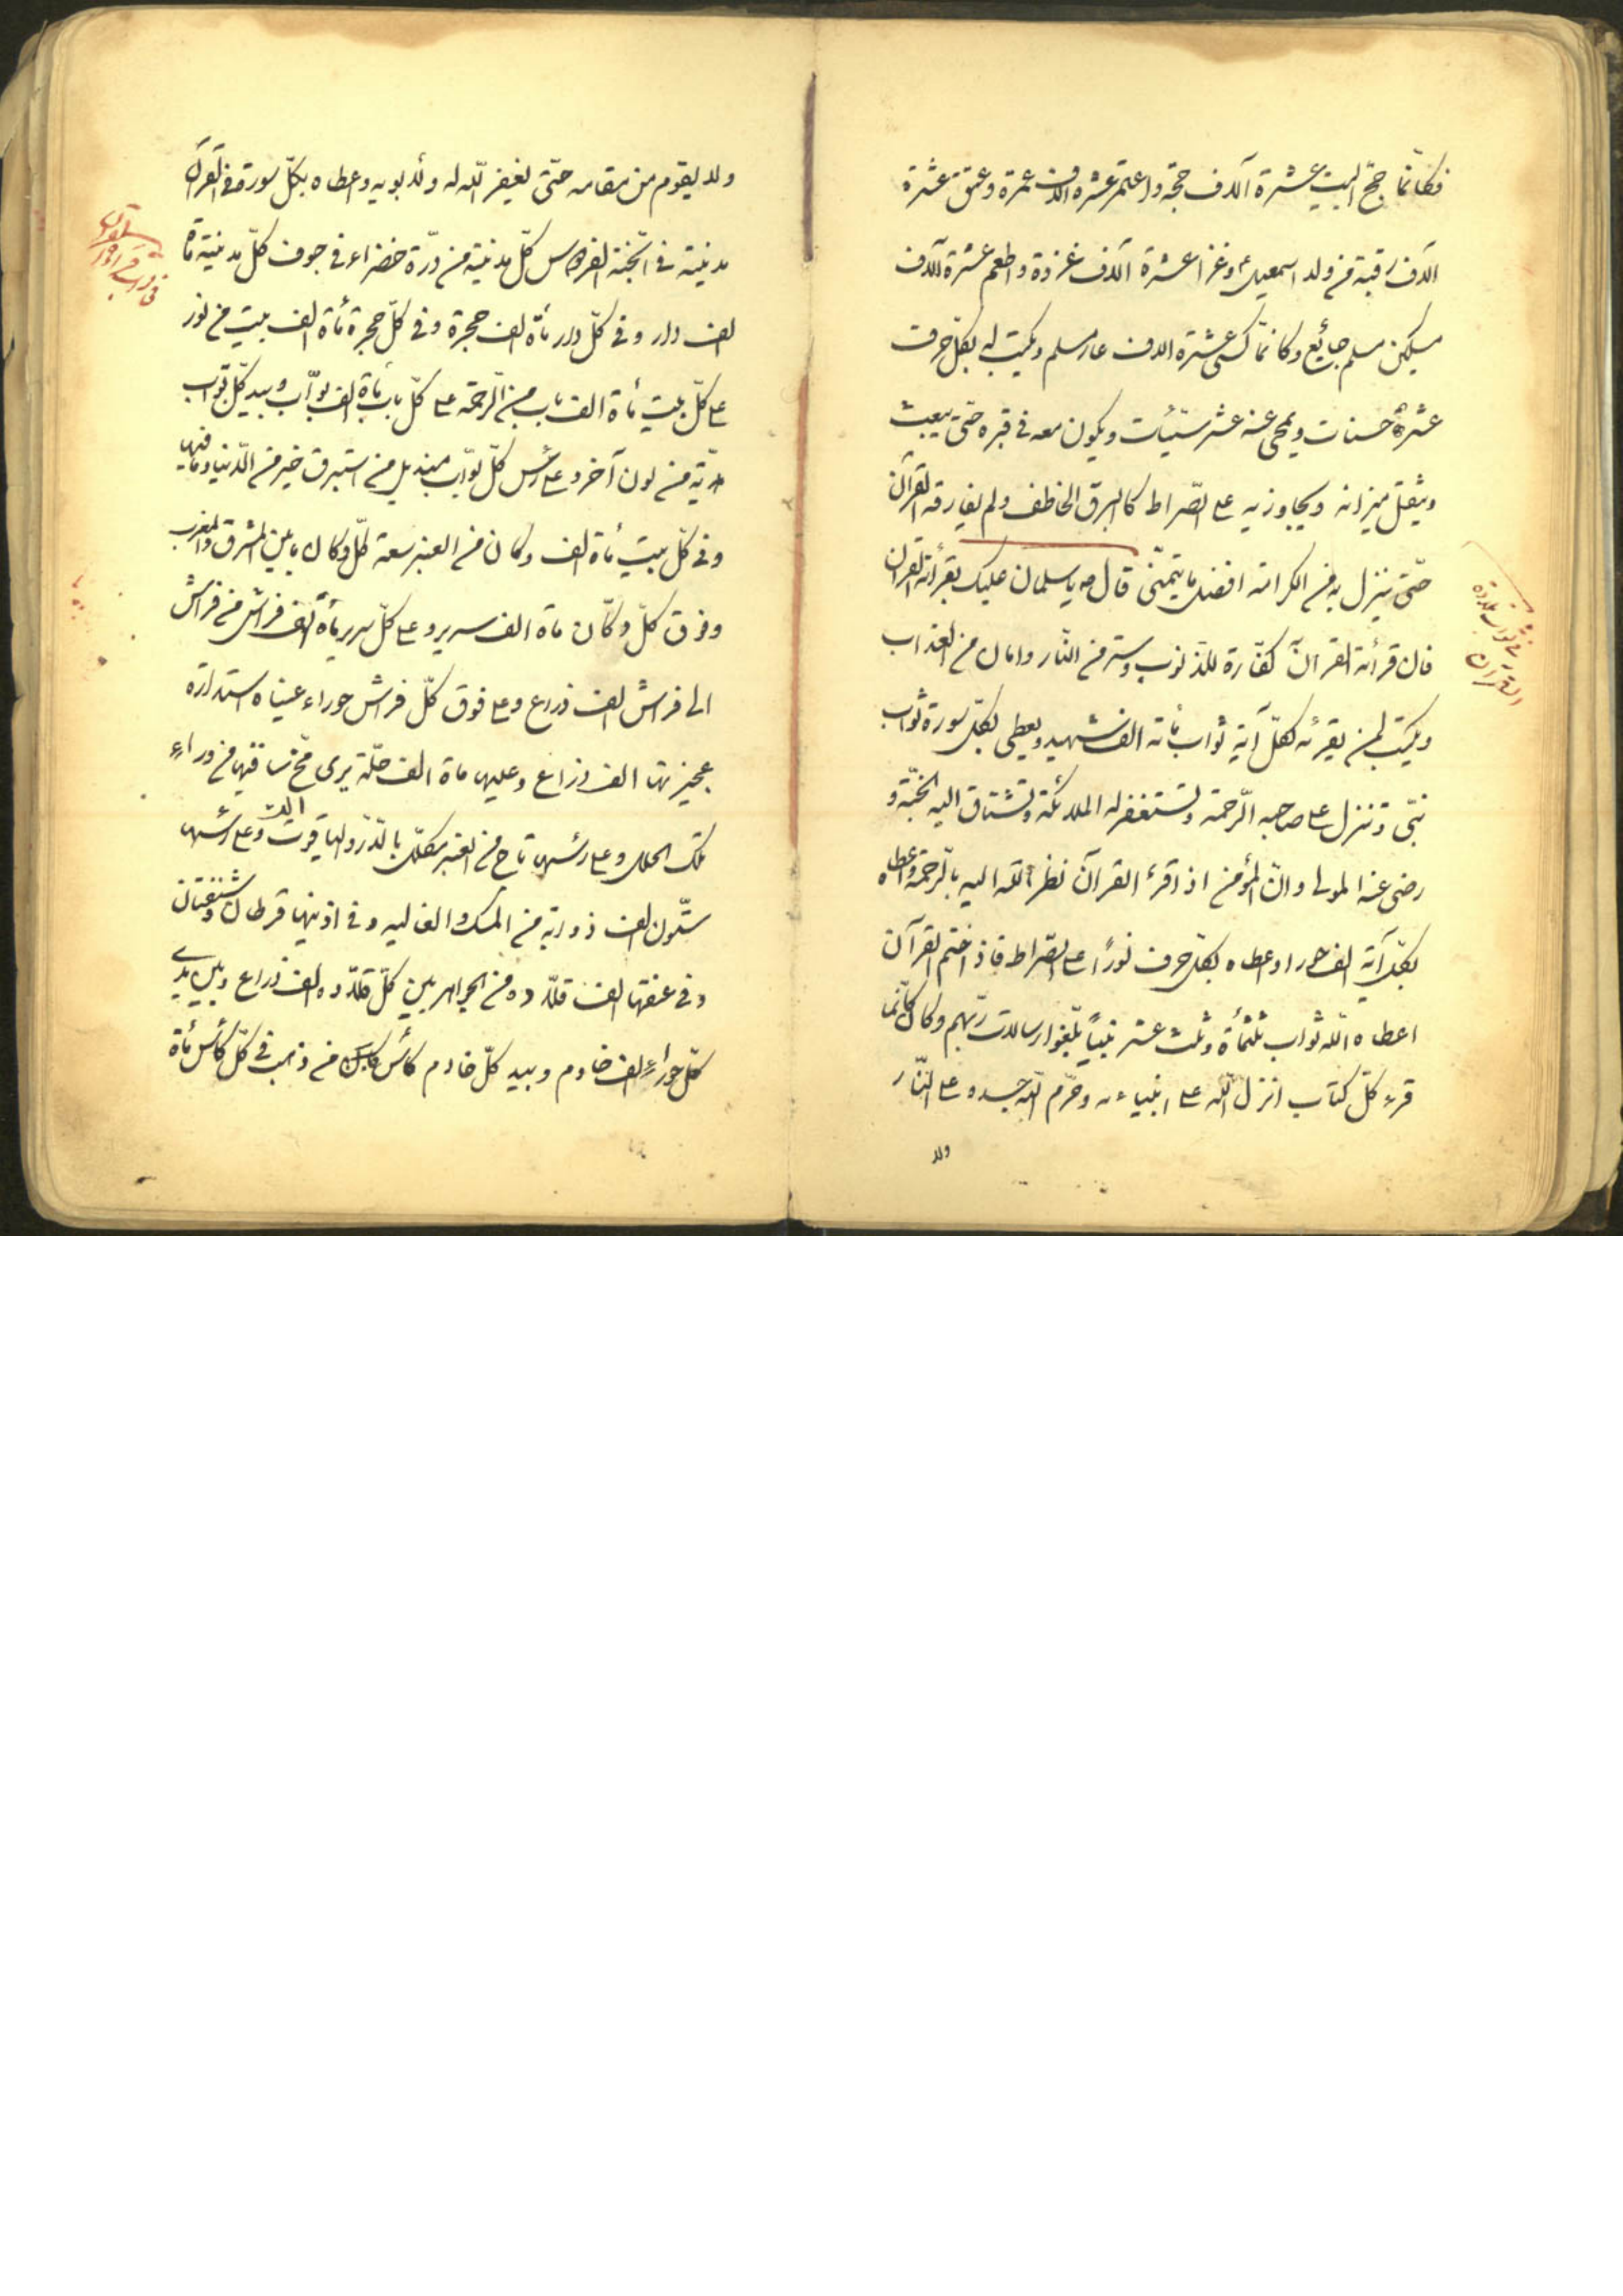 فكانّما حجّ البيت عشرة آلاف حجّة واعتمر عشرة الاف عمرة وعتق عشرة
آلاف رقبة من ولد اسمعيل ع وغزا عشرة آلاف غزوة واطعم عشرة آلاف
مسكين مسلم جائع وكانّما كسى عشرة الاف عار مسلم ويكتب له بكلّ حرف
عشرة حسنات ويمحى عنه عشر سيّئات ويكون معه في قبره حتّى يبعث
ويثقل ميزانه ويجاوز به على الصّراط كالبرق الخاطف ولم يفارقه القرآن
حتّى ينزل به من الكرامة افضل ما يتمنّى قال ص يا سلمان عليك بقرأئة القرآن
فان قرأئة القرآن كفّارة للذنوب وستر من النّار وامان من العذاب
ويكتب لمن يقرئه بكلّ آية ثواب مأئة الف شهيد ويعطى بكلّ سورة ثواب
نبّى وتنزل على صاحبه الرّحمة وتستغفر له الملائكة وتشتاق اليه الجنّة و
رضى عنه المولى وانّ المؤمن اذا قرء القرآن نظر الله اليه بالرّحمة واعطاه
بكلّ آية الف حورا واعطاه بكلّ حرف نورًا على الصّراط فاذا ختم القرآن
اعطاه اللّه ثواب ثلثمأة وثلث عشر نبيّاً بلّغوا رسالات ربّهم وكان كانّما
قرء كلّ كتاب انزل اللّه على انبياءه وحرّم اللّه جسده على النّار
ولا
في ثواب تلاوة
القرآن
ولا يقوم من مقامه حتّى يغفر اللّه له ولأبويه واعطاه بكلّ سورة في القرآن
مدينة في الجّنة الفردوس كلّ مدينة من درّة خضراء في جوف كلّ مدينة مأة
الف دار وفي كلّ دار مأة الف حجرة وفي كلّ حجرة مأة الف بيت من نور
على كلّ بيت مأة الف باب من الرّحمة على كلّ باب مأة الف بوّاب وبيد كلّ بوّاب
هديّة من لون آخر وعلى رأس كلّ بوّاب منديل من استبرق خير من الدّنيا وما فيها
وفي كلّ بيت مأة الف دكان من العنبر سعة كلّ دكان ما بين المشرق والمغرب
وفوق كلّ دكّان مأة الف سرير وعلى كلّ سرير مأة الف فراش من فراش
الى فراش الف ذراع وعلى فوق كلّ فراش حوراء عيناء استدارة
عجيزتها الف ذراع وعليها مأة الف حلّة يرى مخّ ساقيها من وراء
تلك الحلل وعلى رأسها تاج من العنبر مكلّل بالدّرّ والياقوت وعلى رأسها
ستّون الف ذوابة من المسك والغالية وفي اذنيها قرطان وشنفتان
وفي عنقها الف قلّادة من الجواهر بين كلّ قلّادة الف ذراع وبين يدي
كلّ حوراء الف خادم وبيد كلّ خادم كأس من ذهب في كلّ كأس مأة